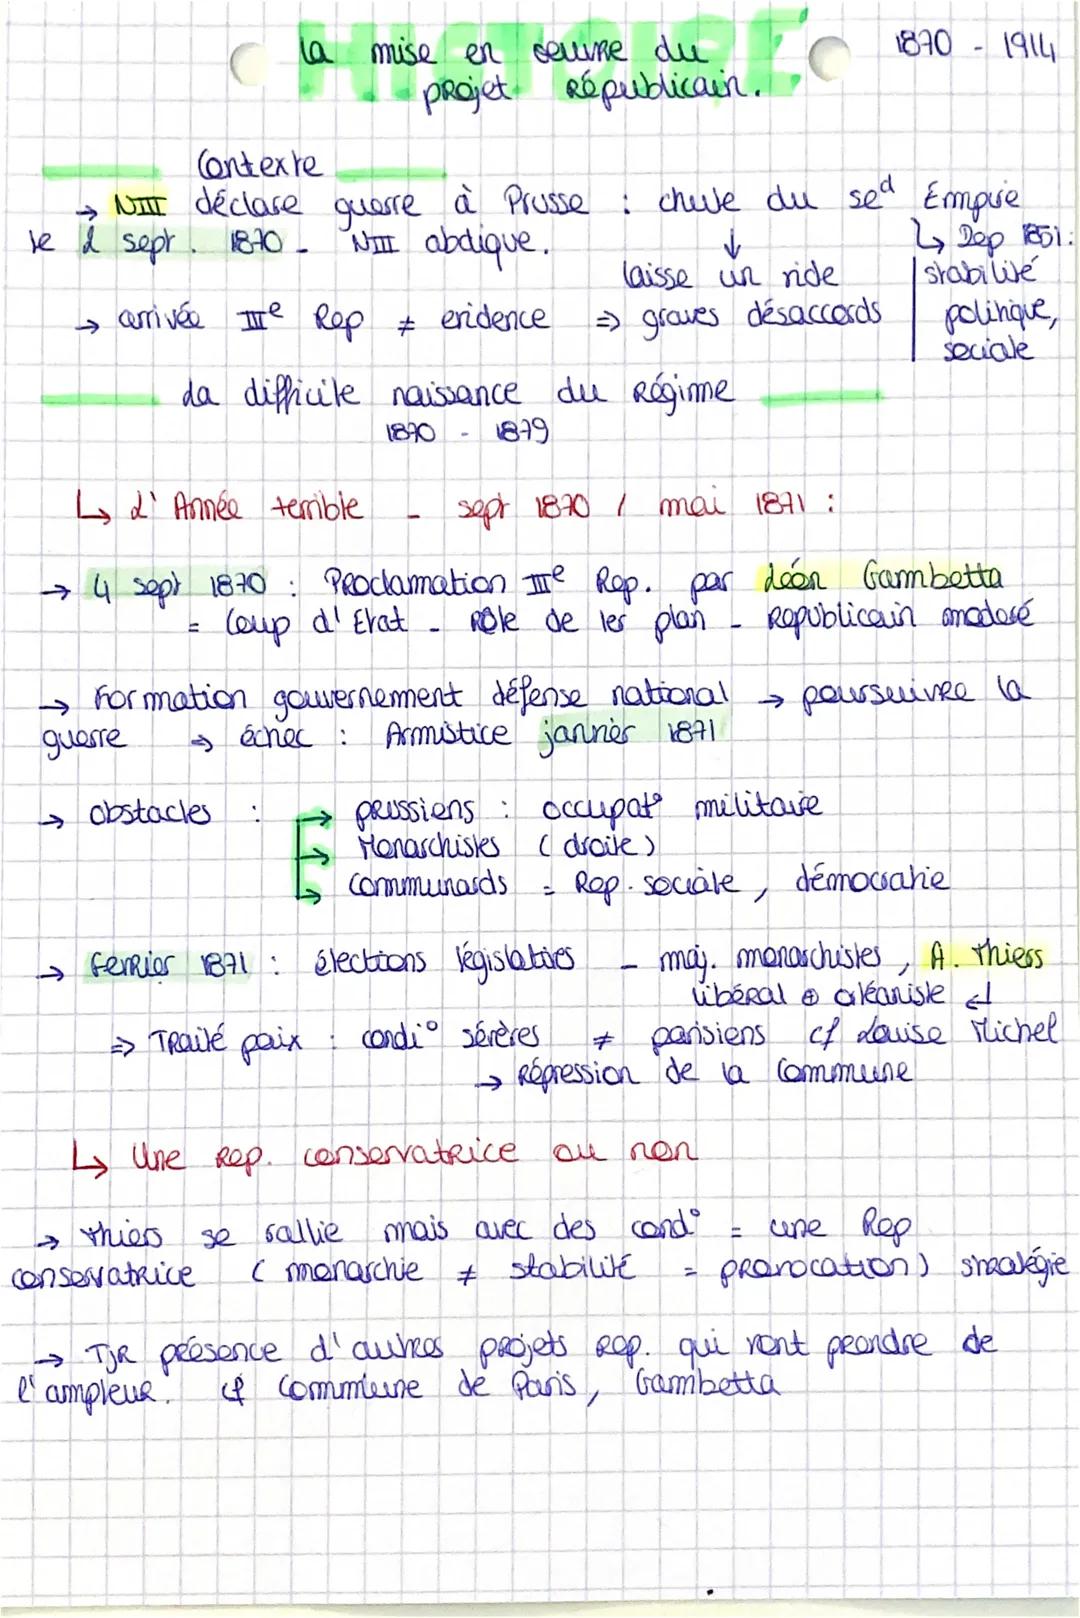 HISTOIRE
La mise en œuvre du
projet Républicain.
1870 - 1914
Contexte
→ NIII déclare guerre à Prusse : chute du sed Empire
le 2 sept. 1870 - NIII abdique. ↓ ↳ Dep 1851:
laisse un vide stabilité
→ arrivée IIIe Rep ≠ evidence ⇒ graves désaccords politique,
sociale
La difficile naissance du Régime
1870 - 1879
↳ L'Année terrible - sept 1870 / mai 1871 :
→ 4 sept 1870 : Proclamation IIIe Rep. par Léon Gambetta
= Coup d'Etat - Rôle de 1er plan - Républicain modéré
→ Formation gouvernement défense national → poursuivre la
guerre ⇒ échec : Armistice janvier 1871
→ obstacles : → prussiens : occupat° militaire
→ Monarchistes (droite)
→ Communards = Rep. sociale, démocratie
→ Février 1871 : élections législatives - maj. monarchistes, A. Thiers
libéral ⊕ orléaniste ↲
⇒ Traité paix : condi° sévères ≠ parisiens cf Louise Michel
→ Répression de la Commune
↳ Une Rep. conservatrice ou non
→ Thiers se rallie mais avec des cond° = une Rep
conservatrice (monarchie ≠ stabilité = provocation) stratégie
→ TJR présence d'autres projets Rep. qui vont prendre de
l'ampleur. cf Commune de Paris, Gambetta